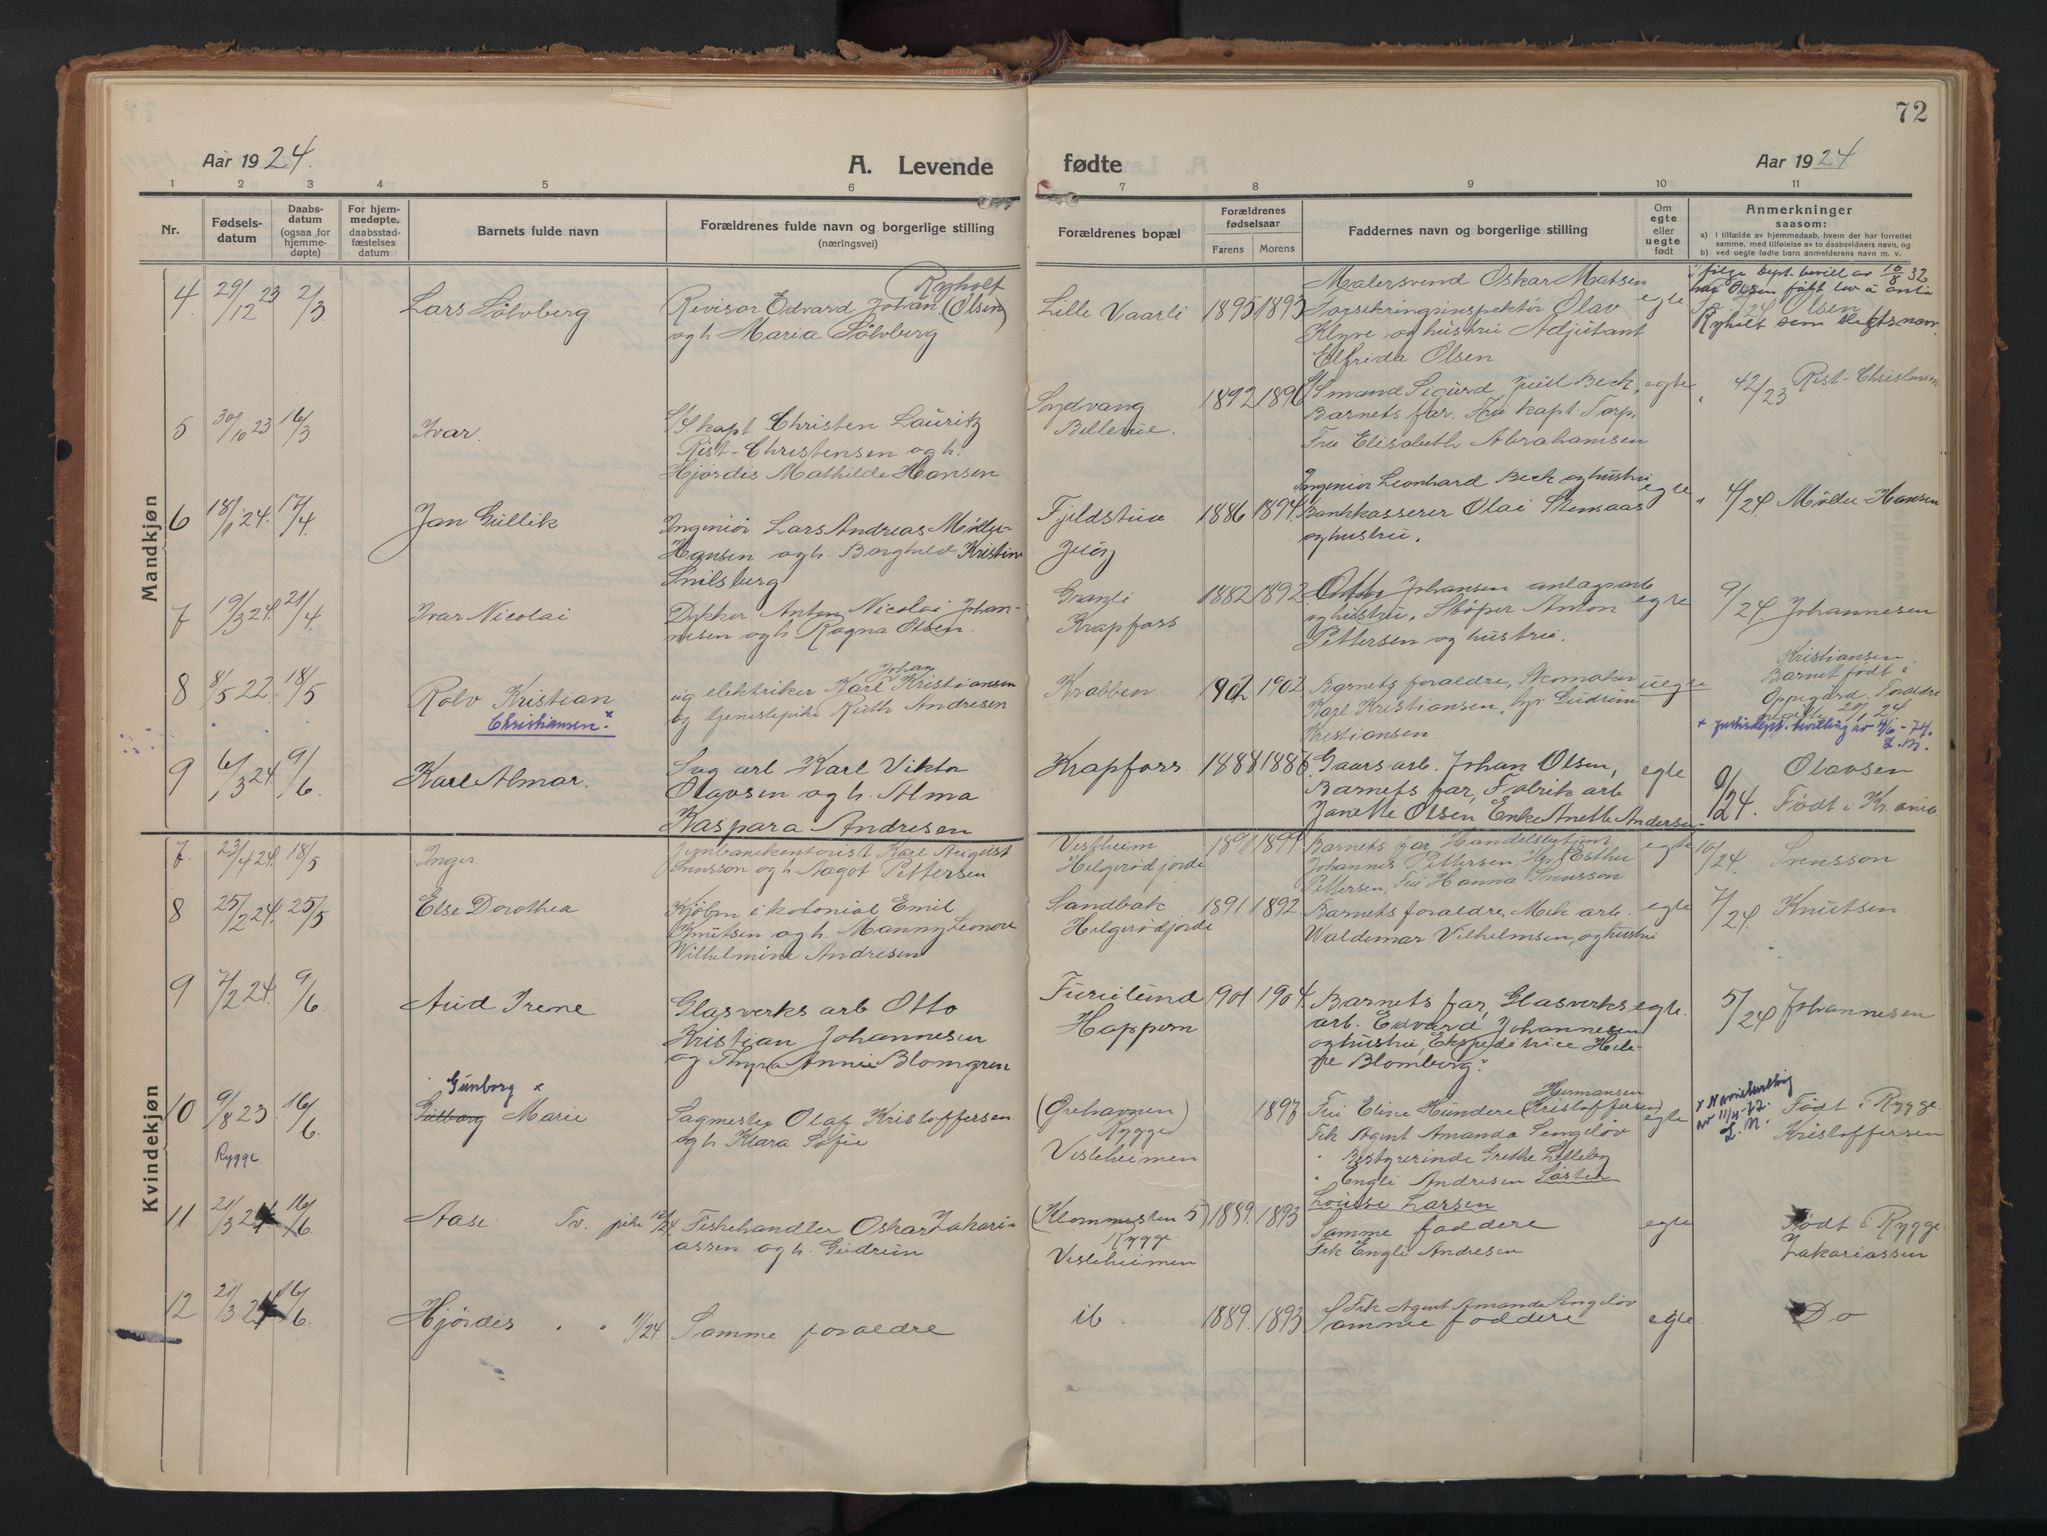 72
Aar 1924.
A. Levende
fødte
Aar 1924
1 2 3 4 5 6 7 8 9 10 11
Nr.
Fødsels-
datum
Daabs-
datum
(ogsaa for
hjemme-
døpte)
For hjem-
medøpte,
daabsstad-
fæstelses
datum
Barnets fulde navn
Forældrenes fulde navn og borgerlige stilling
(næringsvei)
Forældrenes bopæl
Forældrenes
fødselsaar
Farens Morens
Faddernes navn og borgerlige stilling
Om
egte
eller
uegte
født
Anmerkninger
saasom:
a) i tilfælde av hjemmedaab, hvem der har forrettet
samme, med tilføielse av to daabsvidners navn, og
b) ved uegte fødte barn anmelderens navn m. v.
Mandkjøn
4 29/12 23 2/3 Lars Sölvberg
Ryholt
Revisor Edvard Johan (Olsen)
og h. Maria Sölvberg
Lille Vaarli 1895 1893
Malersvend Oskar Matsen
Olav
Klyve og hustru Adjutant
Elfrida Olsen
egte
Olsen
Ryholt som slegtsnavn
5 30/10 23 16/3 Ivar.
S/S kapt. Christen Lauritz
Rist-Christensen og h.
Hjördis Mathilde Hansen
Sydvang
Bellevue. 1892 1896
Sigurd Juell Beck,
Barnets far. Fru kapt. Torp,
Fru Elisabeth Abrahamsen
egte
42/23 Rist-Christensen
6 18/1 24. 17/4 Jan Gullik
Ingeniör Lars Andreas Möller-
Hansen og h. Borghild Kristine
Snilsberg
Fjeldstue
Jelöy 1886 1894
Ingeniör Leonhard Beck og hustru
Bankkasserer Olai Stensaas
og hustru.
egte
4/24. Möller Hansen
7 19/3 24. 21/4. Ivar Nicolai
Dykker Anton Nicolai Johan-
nesen og h. Ragna Olsen.
Granli
Krapfors 1882 1892
Otto Johansen anlægsarb
og hustru. Stöper Anton
Pettersen og hustru.
egte
9/24. Johannesen
8 8/5 22. 18/5 Rolv Kristian
Christiansen. x
Johan
ug elektriker Karl Kristiansen
og tjenestepike Ruth Andresen
Krabben 1902 1902
Barnets foraldre, Skomaker
Karl Kristiansen, Gudrun
Kristiansen
uegte
Kristiansen.
Barnet födt i
Oppegård. Foraldre
x Justisdept. bevilling av 4/6-74.
L.M.
9 6/3 24. 9/6. Karl Almar.
Sag arb Karl Viktor
Olavsen og h. Alma
Kaspara Andresen
Krapfors. 1888 1886
Gaars arb. Johan Olsen,
Barnets far, Fabrik arb
Janette Olsen, Enke Anette Andersen
egte
9/24. Olavsen
Födt i Kr.ania
Kvindekjøn
7. 23/4 24. 18/5 Inger
Jernbanekontorist Karl August
Svensson og h. Aagot Pettersen
Vestheim
Helgerödjorde 1891 1894
Barnets far Handelsbetjent
Johannes Pettersen, Esther
Pettersen, Fru Hanna Svensson
egte
10/24. Svensson
8 25/2 24. 25/5 Else Dorothea
Kjöbm i kolonial Emil
Knutsen og h. Manny Leonore
Wilhelmine Andresen
Sandbak
Helgerödjorde 1891 1892.
Barnets foraldre, Mek arb.
Waldemar Vilhelmsen, og hustru
egte
7/24. Knutsen.
9 7/2 24. 9/6 Aud Irene
Glasverks arb Otto
Kristian Johannesen
og Thyra Annie Blomgren
Furulund
Happern 1901 1904.
Barnets far, Glasverks
arb. Edvard Johannesen
og hustru, Ekspeditrice Hele-
ne Blomberg.
egte.
5/24 Johannesen
10 9/8 23. 16/6. Gunborg x
Marie
Rygge
Sagmester Olaf Kristoffersen
og h Klara Sofie
(Örehavnen
Rygge)
Vesleheimen 1897
Hermansen
Fru Eline Hundere (Kristoffersen)
Frk Agent Amanda Sengelöv
" Bestyrerinde Grethe Lilleby
" Engli Andresen Lasten
egte
x Navneendring
av 11/4-72.
L.M.
Födt i Rygge.
Kristoffersen
11. 21/3 24. 16/6 Aase. Tv. pike 10/24
Fiskehandler Oskar Zakari-
assen og h. Gudrun
(Klommesten 5)
Rygge.
Vesleheimen 1889. 1893
Louise Larsen
Samme faddere
Frk Engli Andresen
egte
Födt i Rygge.
Zakariassen
12 21/3 24 16/6. Hjördis " " 11/24.
Samme foraldre
ib. 1889. 1893
Frk Agent Amanda Sengelöv
Samme faddere
egte
Do